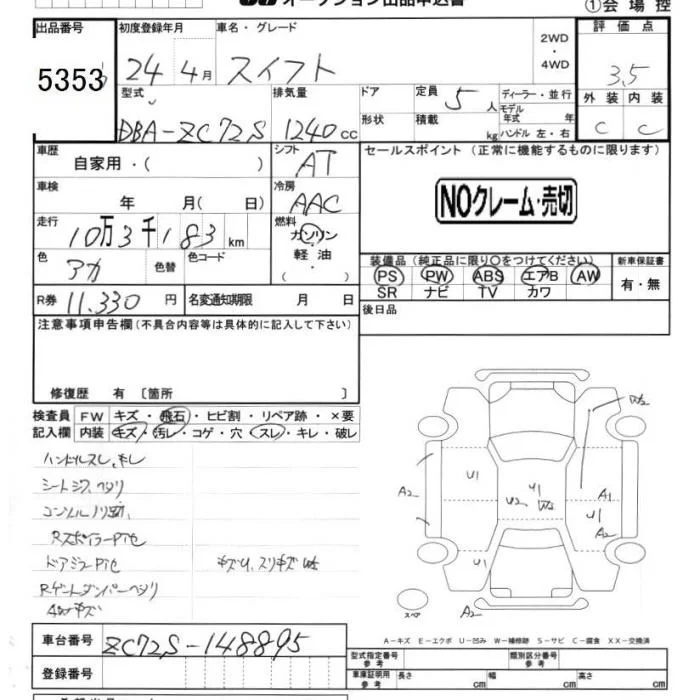 オークション出品申込書
①会場控
出品番号 初度登録年月 車名・グレード 2WD・4WD 評価点
5353 24年 4月 スイフト 3.5
型式 排気量 ドア 定員 5人 ディーラー・並行 外装 内装
DBA-ZC72S 1240cc 形状 積載 kg モデル年式 年 C C
ハンドル 左・右
車歴 自家用・( ) シフト AT セールスポイント (正常に機能するものに限ります)
車検 年 月(日) 冷房 AAC NOクレーム・売切
走行 10万3千183km 燃料 ガソリン・軽油・( )
色 アカ 色替 色コード 装備品 (純正品に限り○をつけてください) 新車保証書
PS PW ABS エアB AW 有・無
SR ナビ TV カワ
R券 11,330円 名変通知期限 月 日 後日品
注意事項申告欄 (不具合内容等は具体的に記入して下さい)
修復歴 有 〔箇所 〕
検査員記入欄 FW キズ・飛石・ヒビ割・リペア跡・×要
内装 キズ・汚レ・コゲ・穴・スレ・キレ・破レ
ハンドルスレ、キレ
シートシワ、ヘタリ
RスポイラーPセ
ドアミラーPセ
Rゲートダンパーヘタリ
4Wキズ
W2
U1 U1 A1
A2 U2 W2 U1
A2
U1
スペア A2
A-キズ E-エクボ U-凹み W-補修跡 S-サビ C-腐食 XX-交換済
車台番号 ZC72S-148895 型式指定番号 参考 類別区分番号 参考
登録番号 車庫証明用 参考 長さ cm 幅 cm 高さ cm